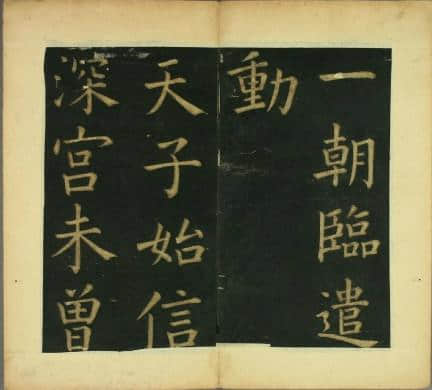 一朝臨遣
動
天子始信
深宮未曽